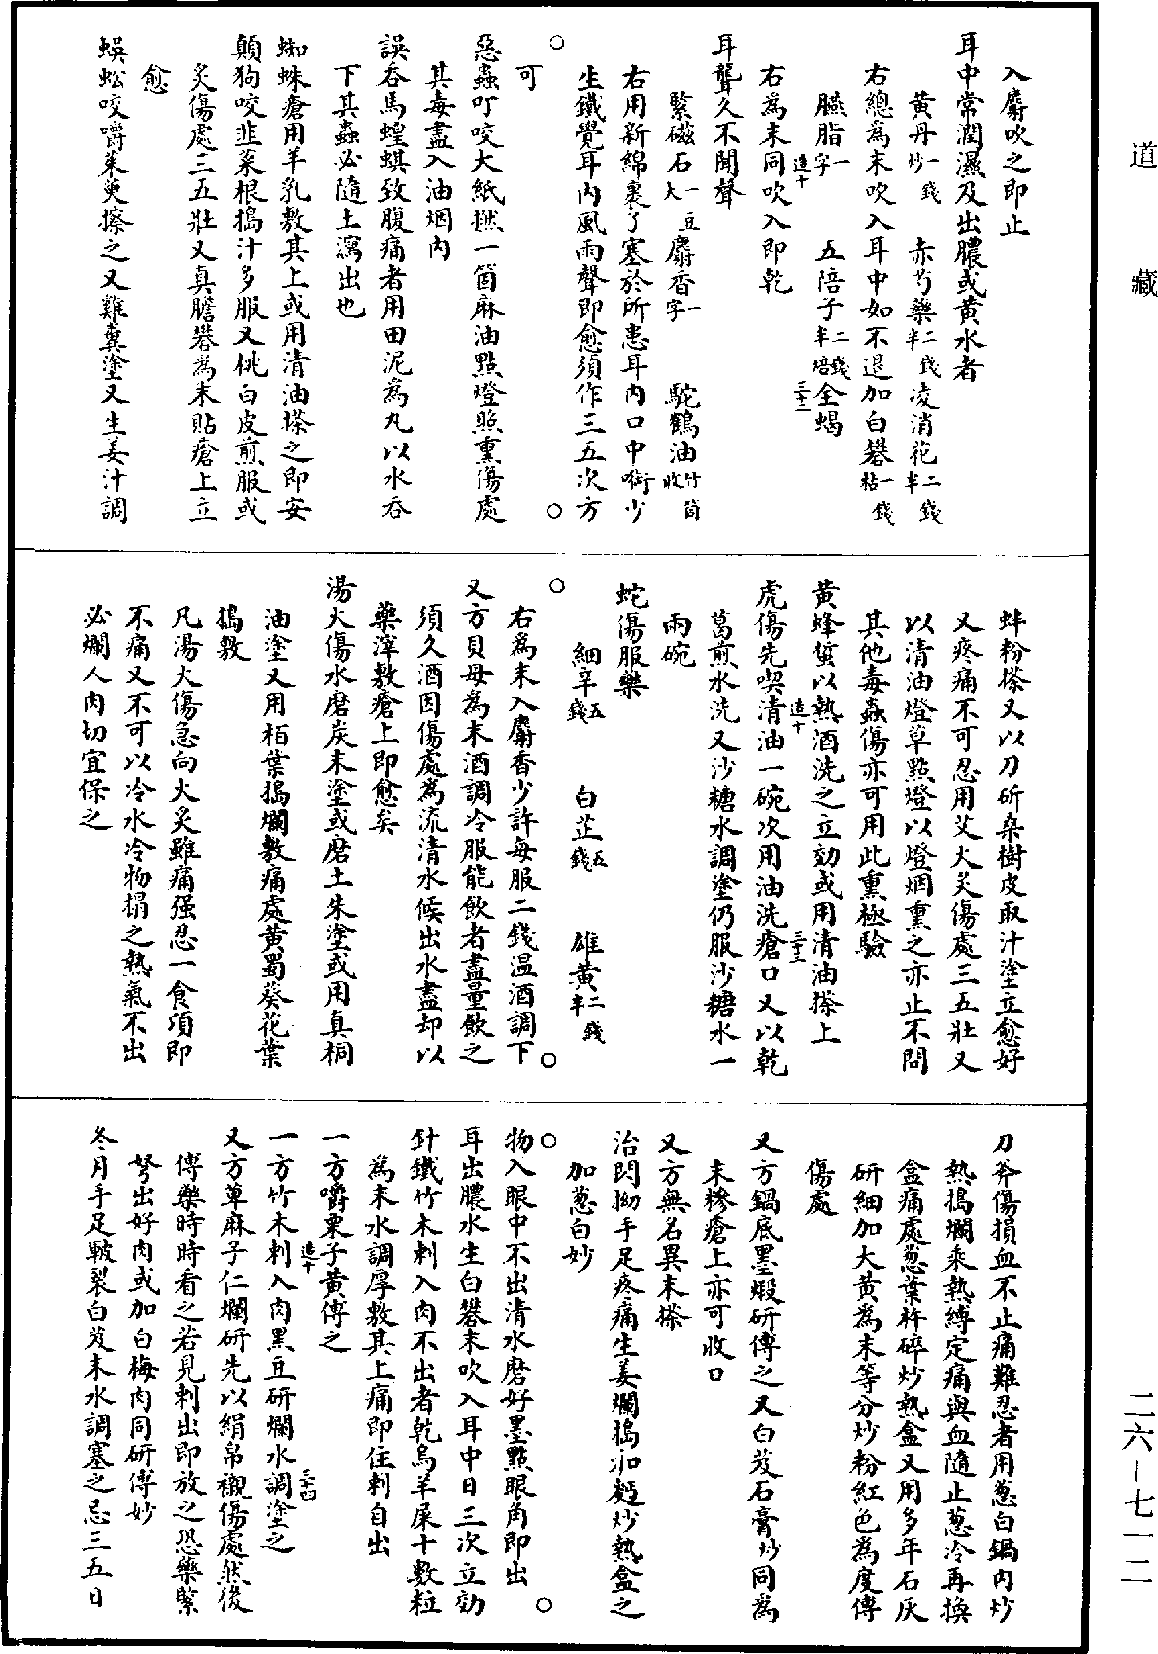 道藏
入麝吹之即止
耳中常潤濕及出膿或黄水者
黄丹炒一錢 赤芍藥二錢半 凌消花二錢半
右總為末吹入耳中如不退加白礬枯一錢
臙脂一字 五陪子二錢半焙 全蝎
右為末同吹入即乾
耳聾久不聞聲
緊磁石一豆大 麝香一字 駝鶴油竹筒收
右用新綿裹了塞於所患耳内口中啣少
生鐵覺耳内風雨聲即愈須作三五次方
可
惡蟲叮咬大紙撚一箇麻油點燈照熏傷處
其毒盡入油烟内
誤吞馬蝗蜞致腹痛者用田泥為丸以水吞
下其蟲必隨土瀉出也
蜘蛛瘡用羊乳敷其上或用清油搽之即安
顛狗咬韭菜根搗汁多服又桃白皮煎服或
炙傷處二五壯又真膽礬為末貼瘡上立
愈
蜈蚣咬嚼茱萸擦之又雞糞塗又生姜汁調
蚌粉搽又以刀斫桑樹皮取汁塗立愈好
又疼痛不可忍用艾火炙傷處三五壯又
以清油燈草點燈以燈烟熏之亦止不問
其他毒蟲傷亦可用此熏極驗
黄蜂蜇以熱酒洗之立効或用清油搽上
虎傷先喫清油一碗次用油洗瘡口又以乾
葛煎水洗又沙糖水調塗仍服沙糖水一
兩碗
蛇傷服藥
細辛五錢 白芷五錢 雄黄二錢半
右為末入麝香少許每服二錢温酒調下
又方貝母為末酒調冷服能飲者盡量飲之
須久酒因傷處為流清水候出水盡却以
藥滓敷瘡上即愈矣
湯火傷水磨炭末塗或磨土朱塗或用真桐
油塗又用栢葉搗爛敷痛處黄蜀葵花葉
搗敷
凡湯火傷急向火炙雖痛强忍一食頃即
不痛又不可以冷水冷物搨之熱氣不出
必爛人肉切宜保之
刀斧傷損血不止痛難忍者用葱白鍋内炒
熱搗爛乘熱縛定痛與血隨止葱冷再換
盒痛處葱葉杵碎炒熱盒又用多年石灰
研細加大黄為末等分炒粉紅色為度傅
傷處
又方鍋底墨煅研傅之又白芨石膏炒同為
末糝瘡上亦可收口
又方無名異末搽
治閃拗手足疼痛生姜爛搗和麪炒熱盒之
加葱白妙
物入眼中不出清水磨好墨點眼角即出
耳出膿水生白礬末吹入耳中日三次立効
針鐵竹木刺入肉不出者乾烏羊屎十數粒
為末水調厚敷其上痛即住刺自出
一方嚼栗子黄傅之
一方竹木刺入肉黑豆研爛水調塗之
又方萆麻子仁爛研先以絹帛襯傷處然後
傅藥時時看之若見刺出即放之恐藥緊
弩出好肉或加白梅肉同研傅妙
冬月手足皸裂白芨末水調塞之忌三五日
二六—七一二